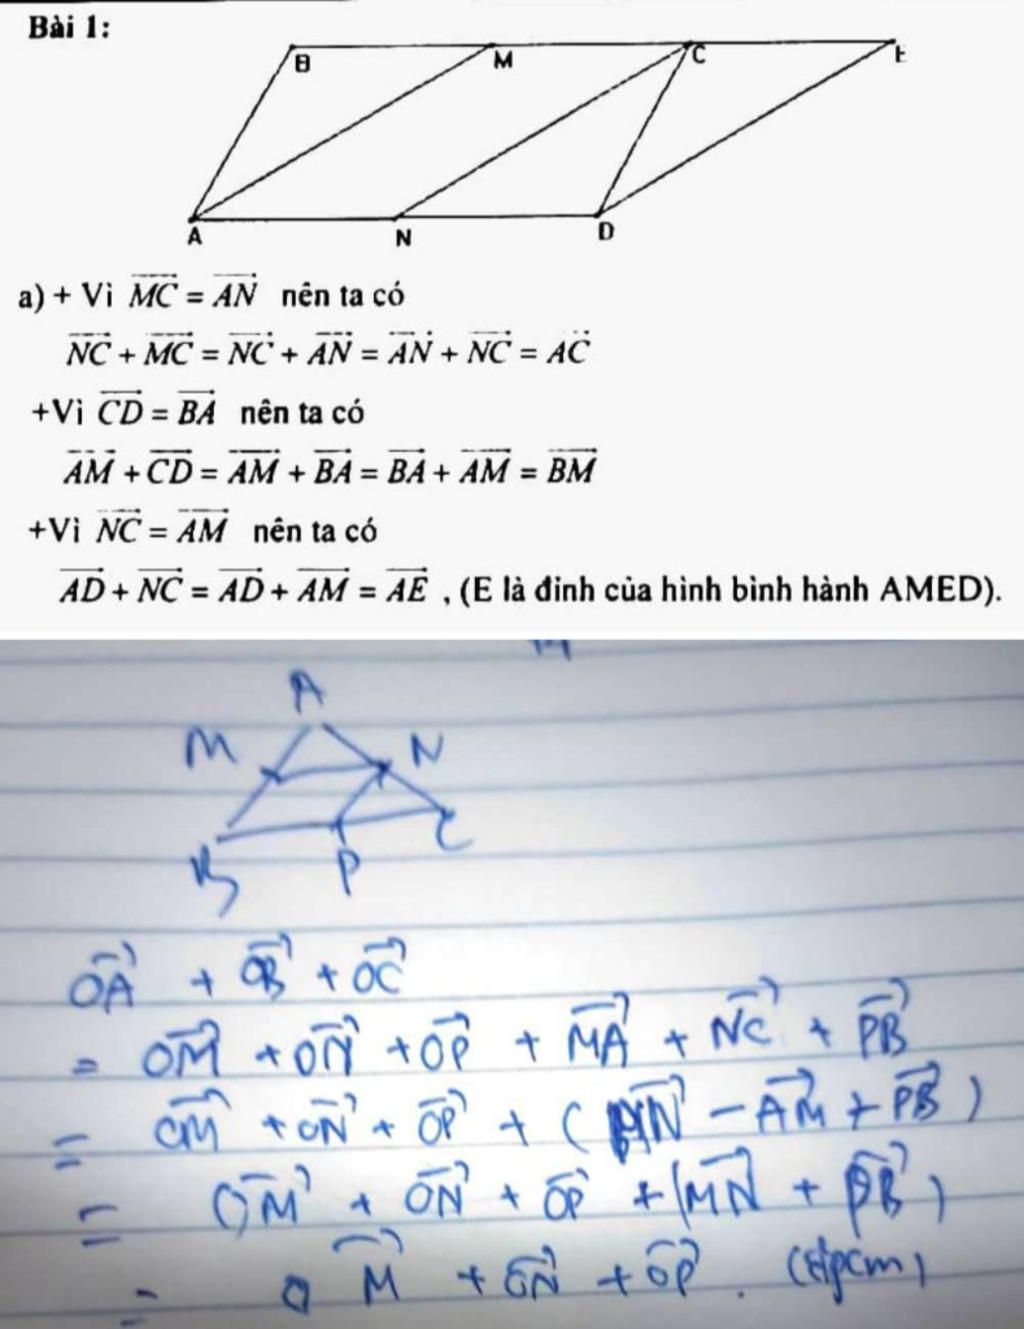 Bài 1:
B M C E
A N D
a) + Vì MC = AN nên ta có
NC + MC = NC + AN = AN + NC = AC
+Vì CD = BA nên ta có
AM + CD = AM + BA = BA + AM = BM
+Vì NC = AM nên ta có
AD + NC = AD + AM = AE , (E là đỉnh của hình bình hành AMED).
A
M N
B P C
OA + OB + OC
= OM + ON + OP + MA + NC + PB
= OM + ON + OP + ( AN - AM + PB )
= OM + ON + OP + (MN + PB)
= OM + ON + OP . (đpcm)